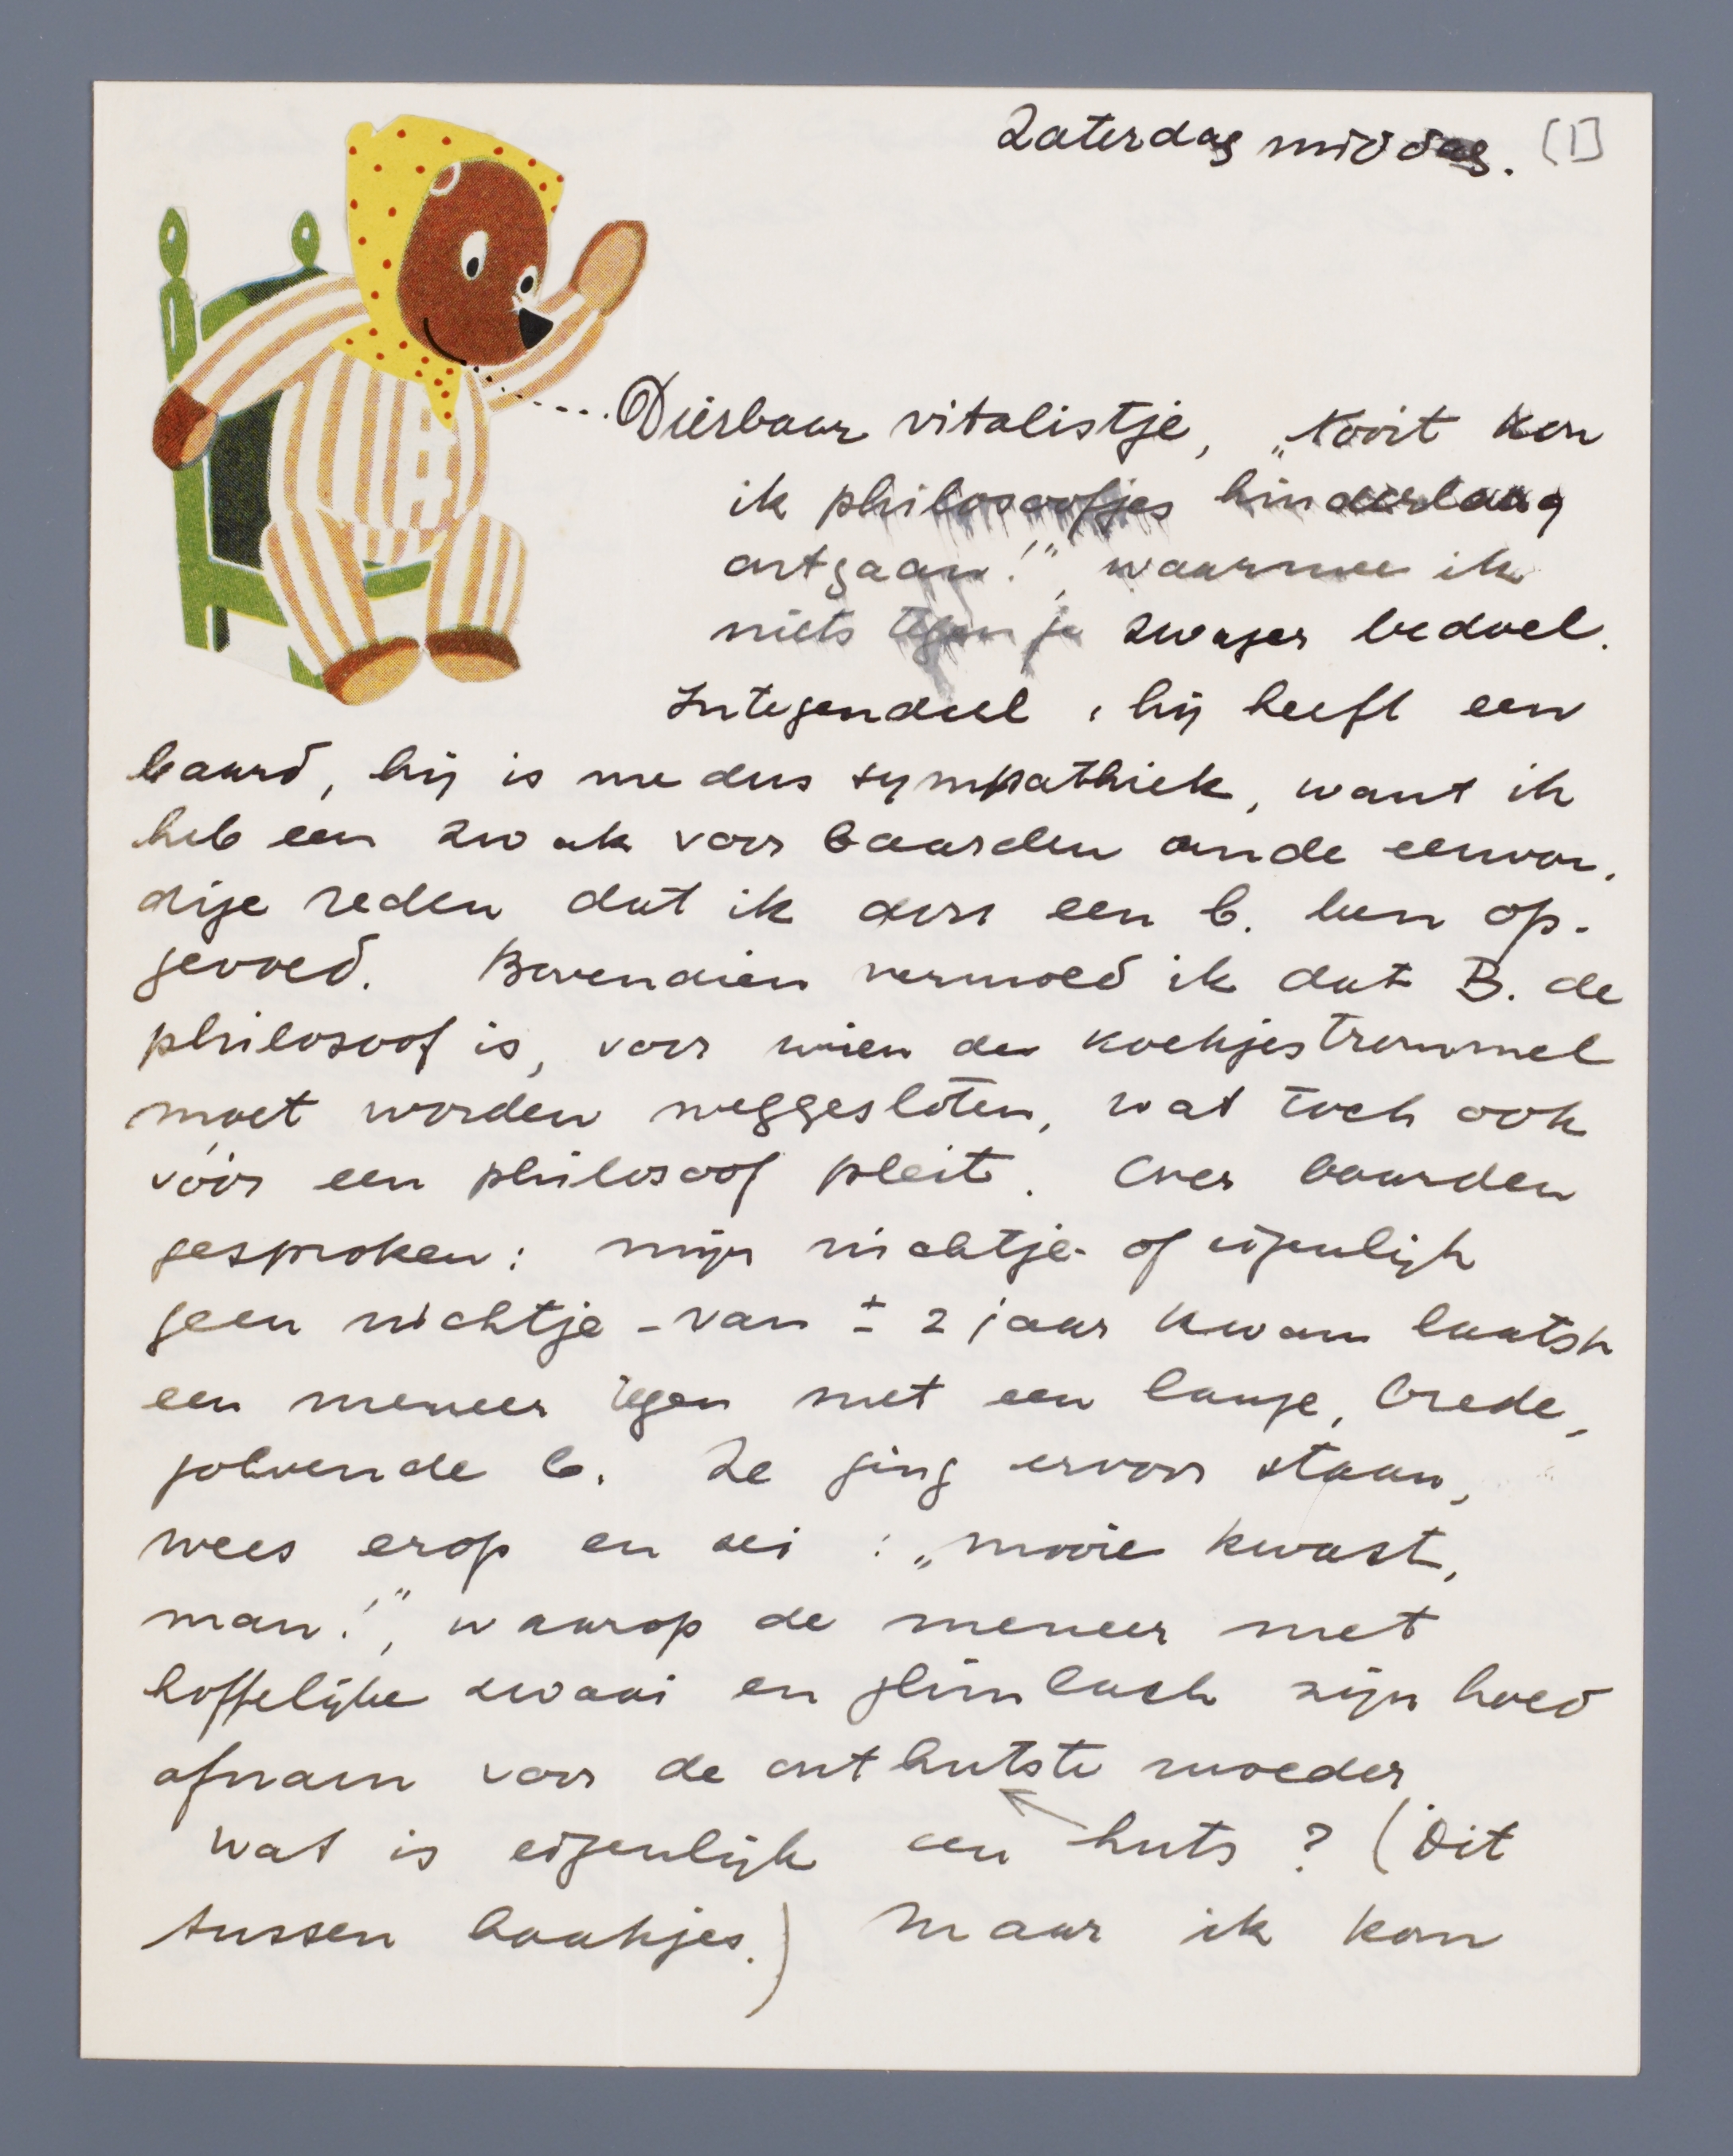 Zaterdagmiddag. [1]
Dierbaar vitalistje, „Nooit kon
ik philosoofjes hinderlaag
ontgaan!", waarmee ik
niets tegen je zwager bedoel.
Integendeel, hij heeft een
baard, hij is me dus sympathiek, want ik
heb een zwak voor baarden om de eenvou-
dige reden dat ik door een b. ben op-
gevoed. Bovendien vermoed ik dat B. de
philosoof is, voor wien de koekjestrommel
moet worden weggesloten, wat toch ook
vóór een philosoof pleit. Over baarden
gesproken: mijn nichtje - of eigenlijk
geen nichtje - van ± 2 jaar kwam laatst
een meneer tegen met een lange, brede,
golvende b. Ze ging ervoor staan,
wees erop en zei: „mooie kwast,
man!", waarop de meneer met
hoffelijke zwaai en glimlach zijn hoed
afnam voor de onthutste moeder
Wat is eigenlijk een huts? (Dit
tussen haakjes.) Maar ik kon